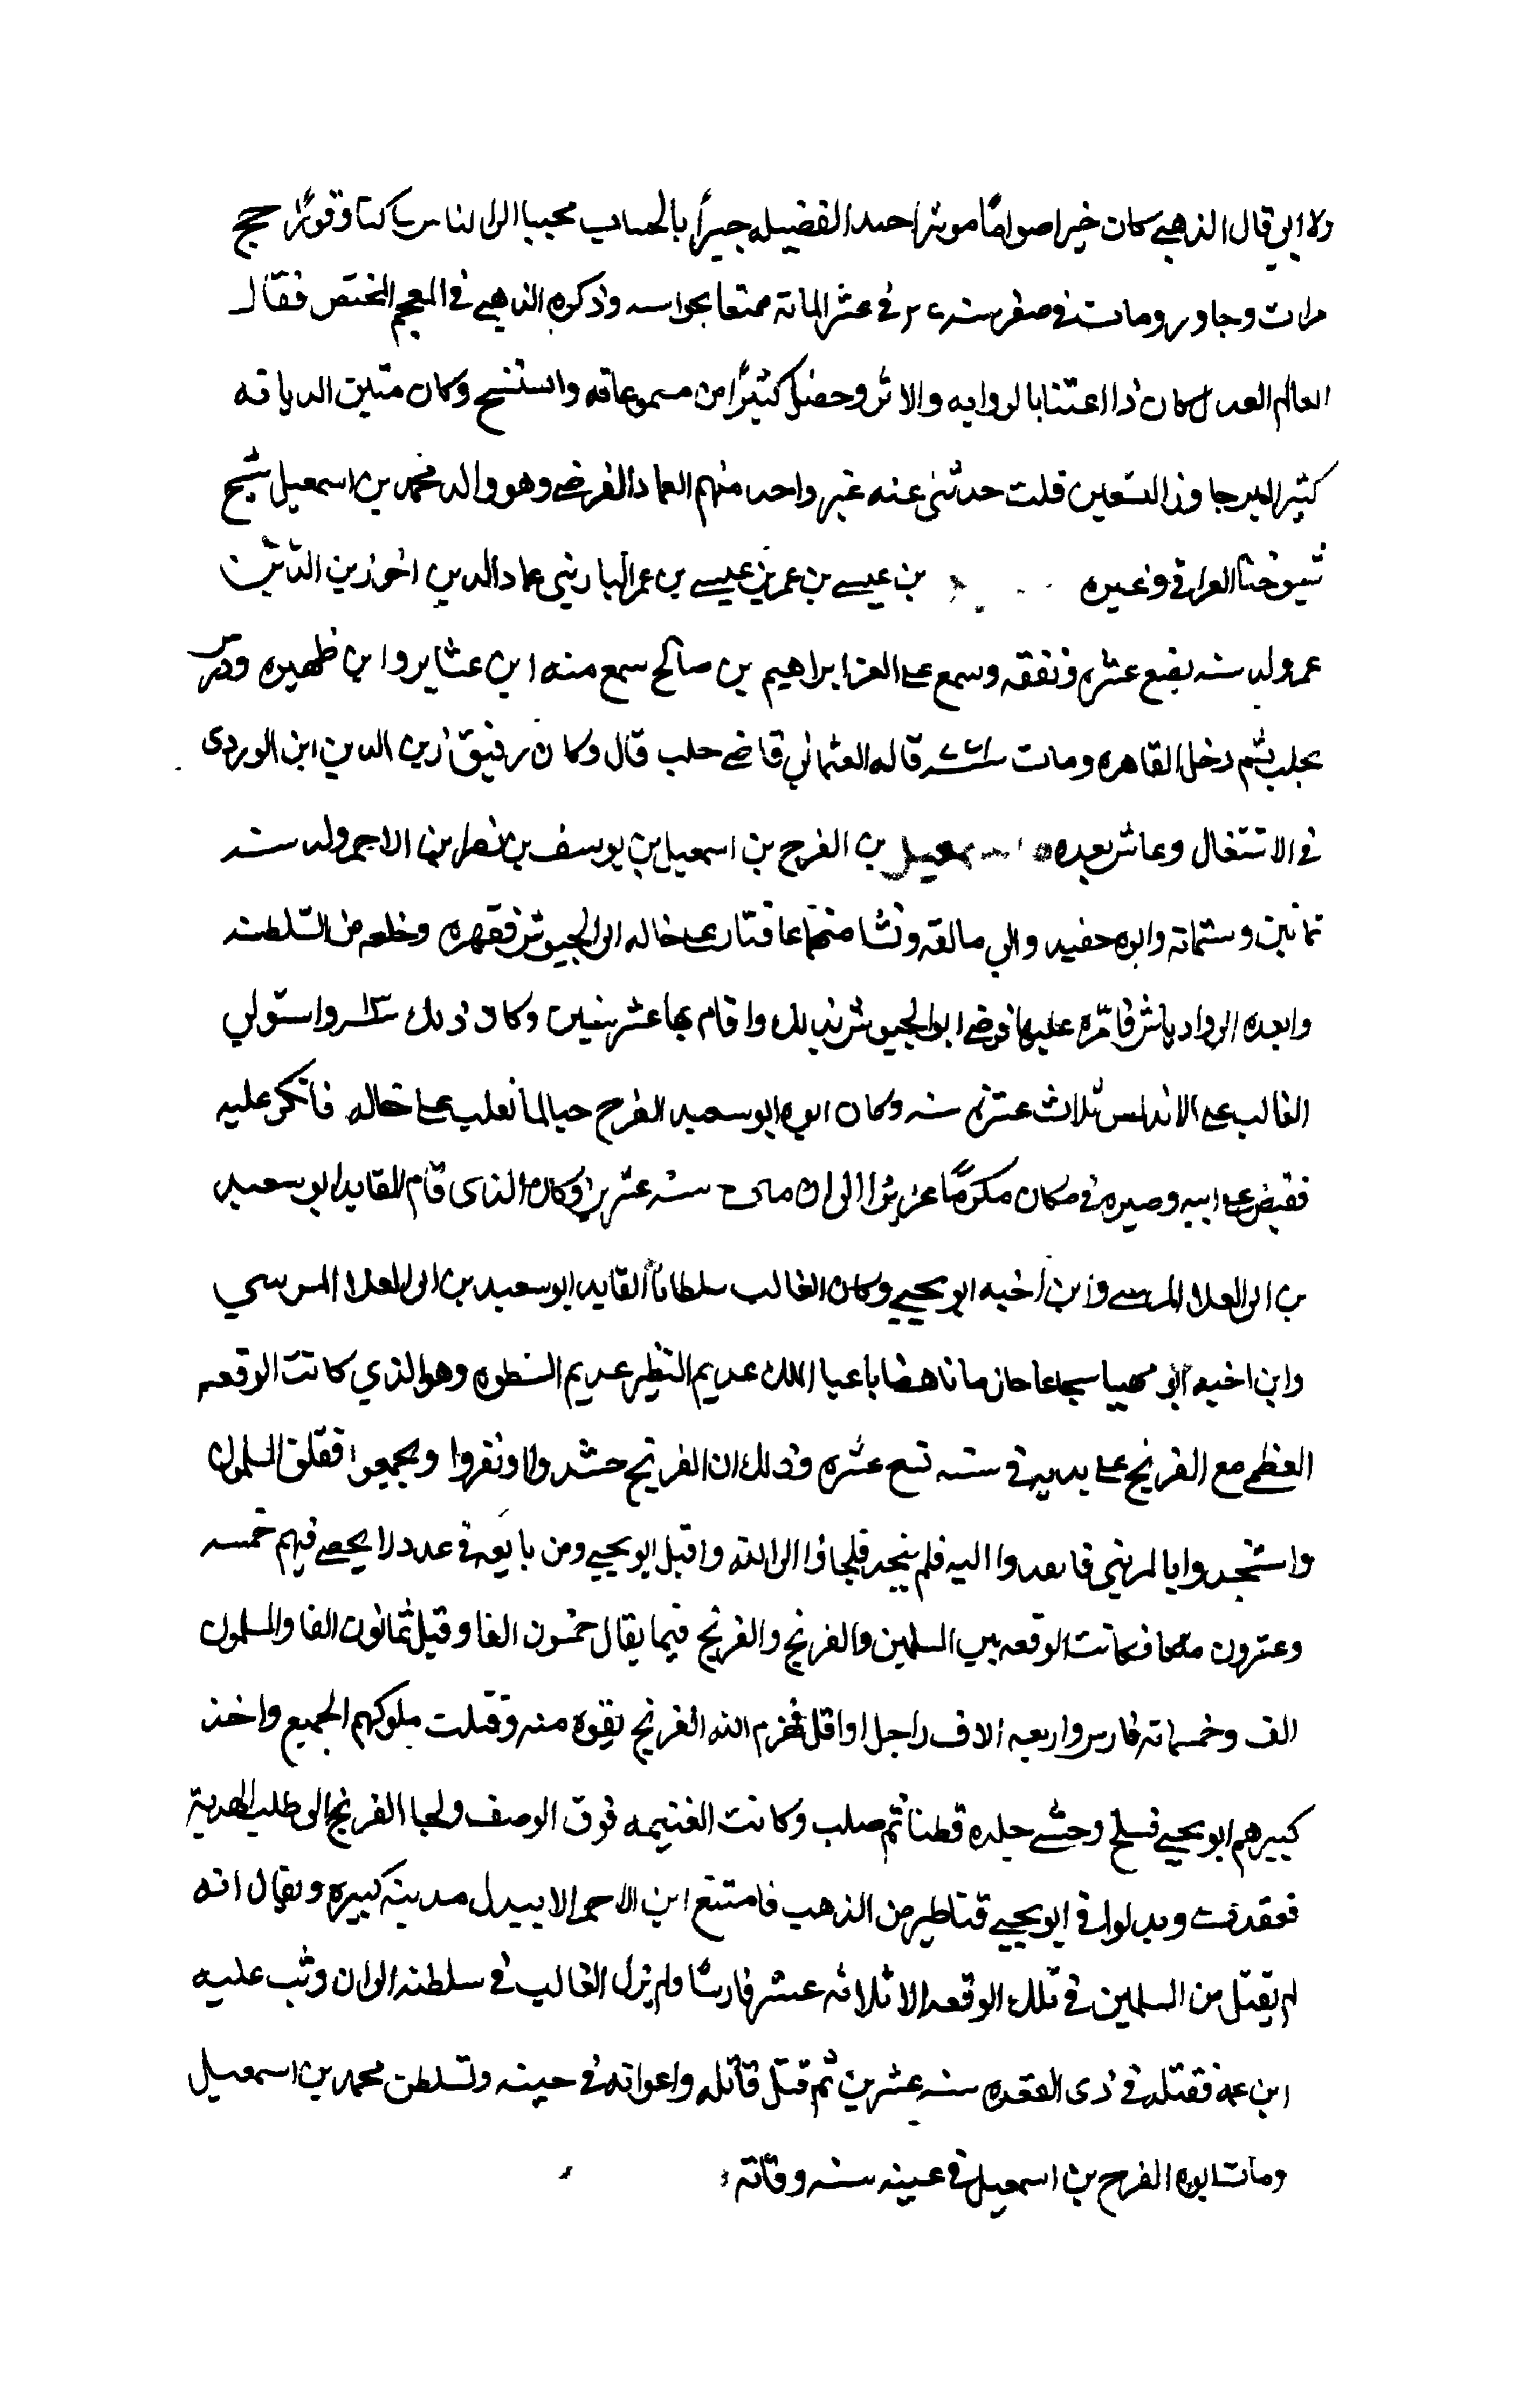 ولابي قال الذهبي كان خيرا صواما موثرا حسن الفضيله جيرا بالحساب محببا الى الناس ساكنا وقورًا حج
مرات وجاور ومات في صفر سنة في عشر المائة ممتعا بحواسه وذكره الذهبي في المعجم المختص فقال
العالم العدل كان ذا اعتنا بالروايه والاثر وحصل كثيرًا من مسموعاته واستنسخ وكان متين الديانه
كثير البر جاوز التسعين قلت حدثني عنه غير واحد منهم العماد الفرضي وهو والد محمد بن اسمعيل شيخ
شيوخنا العراقي وغيره بن عيسى بن عمر بن عيسى بن عمر البارينى عماد الدين اخو زين الدين
عمر ولد سنه بضع عشره وتفقه وسمع على العز ابراهيم بن صالح سمع منه ابن عشاير وابن ظهيره ودرس
بحلب ثم دخل القاهره ومات قاله العثماني قاضي حلب قال وكان رفيق زين الدين ابن الوردى
في الاشتغال وعاش بعده اسمعيل بن الفرج بن اسمعيل بن يوسف بن نصر بن الاحمر ولد سنه
ثمانين وستمائة وابوه حفيد والي مالقه ونشا شجاعا فثار على خاله ابى الجيوش فقهره وخلعه من السلطنه
وابعده الى وادياش فامره عليها فرضي ابو الجيوش بذلك واقام بها عشر سنين وكان ذلك واستولى
الغالب على الاندلس ثلاث عشره سنه وكان ابوه ابو سعيد الفرج حيا لما تغلب على خاله فانكر عليه
فقبض على ابيه وصيره في مكان مكرمًا عزيزا الى ان مات سنه عشرين وكان الذى قام القايد ابو سعيد
بن ابى العلا المريني وابن اخيه ابو يحيى وكان الغالب سلطانا القايد ابو سعيد بن ابى العلا المريني
وابن اخيه ابو يحيى شجاعا حازما ناهضا باعبا الملك عديم النظير عديم السطوه وهو الذي كانت الوقعه
العظمى مع الفرنج على يديه في سنه تسع عشره وذلك ان الفرنج حشدوا ونفروا وتجمعوا فقلق المسلمون
واستنجدوا بالمريني فانفدوا اليه فلم ينجد فلجاوا الى الله واقبل ابو يحيى ومن بايعه في عدد لا يحصى فيهم خمسه
وعشرون ملكا فكانت الوقعه بين المسلمين والفرنج والفرنج فيما يقال خمسون الفا وقيل ثمانون الفا والمسلمون
الف وخمسمائة فارس واربعه الاف راجل او اقل فهزم الله الفرنج بقوة منه وقتلت ملوكهم الجميع واخذ
كبيرهم ابو يحيى فسلخ وحشي جلده قطنا ثم صلب وكانت الغنيمه فوق الوصف ولجا الفرنج الى طلب الهدنة
فعقدت وبدلوا في ابو يحيى قناطير من الذهب فامتنع ابن الاحمر الا ببدل مدينة كبيره ويقال انه
لم يقتل من المسلمين في تلك الوقعه الا ثلاثه عشر فارسًا ولم يزل الغالب في سلطنته الى ان وثب عليه
ابن عمه فقتله في ذى القعده سنه عشرين ثم قتل قاتله واعوانه في حينه وتسلطن محمد بن اسمعيل
ومات ابوه الفرج بن اسمعيل في عينه سنه وفاته